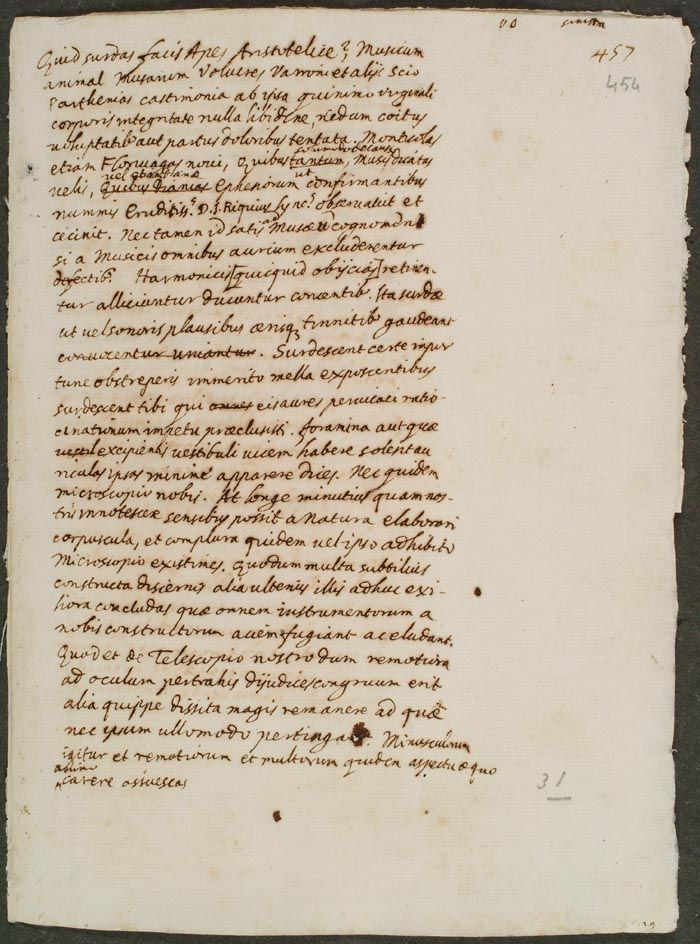 457
454
Quid surdas facis Apes Aristotelice? Musicum
animal Musarum Volucres Varroni et alijs. Scio
Parthenias castimonia ab ipsa quinimo virginali
corporis integritate nulla libidine nedum coitus
voluptatib aut partus doloribus tentata. Monticolas
etiam Florivagas novi, quibus tantum, Musis dicatus
vel
velis, Quibus Dianias Ephesiorum ut confirmantibus
nummis Erudítiss.s D. J. Riquius Lync.s observavit et
cecinit. Nec tamen id satis ad Musaeu cognomen
si a Musicis omnibus aurium excluderentur
defectib. Harmonicis [quicquid obijcias] retinen-
tur alliciuntur ducuntur concentib. Ita surdæ
ut vel sonoris plausibus ærisq tinnitib gaudeant
convocentur uniantur. Surdescent certe impor
tune obstreperis immerito mella exposcentibus
surdescent tibi qui omnes eis aures pervicaci ratio-
cinationum impetu præclusisti. foramina aut quæ
excipientis vestibuli vicem habere solent au
riculas ipsas minime apparere dices. Nec quidem
microscopio nobis. At longe minutius quam nos-
tris innotescere sensibus possit a Natura elaborari
corpuscula, et complura quidem vel ipso adhibito
Microscopio existimes. Quo dum multa subtilius
constructa discernis alia ulterius illis adhuc exi-
liora concludas quæ omnem instrumentorum a
nobis constructorum aciem fugiant ac eludant.
Quod et de Telescopio nostro dum remotiora
ad oculum pertrahis dijudices congruum erit
alia quippe dissita magis remanere ad quæ
nec ipsum ullomodo pertingat. Minusculorum
igitur et remotiorum et multorum quidem aspectu æquo
animo
carere assuescas
31